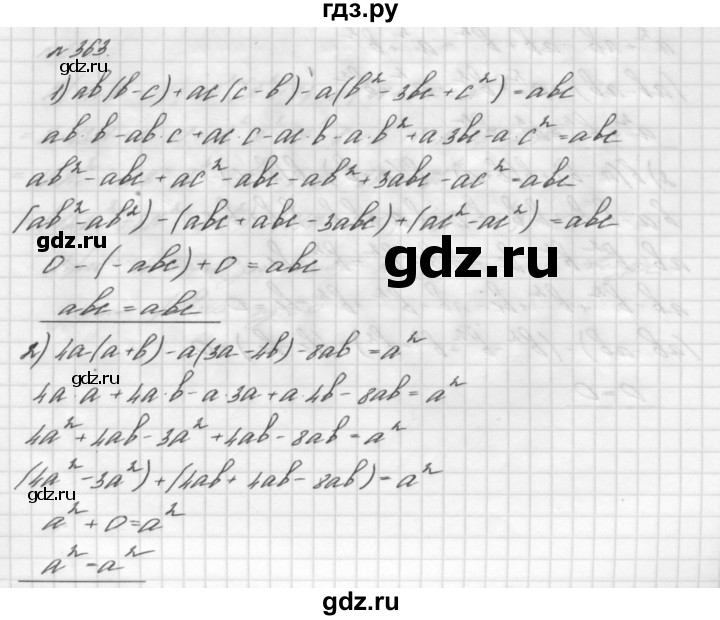 гдз.ру
№ 363.
1) ab(b-c)+ac(c-b)-a(b²-3bc+c²)=abc
ab·b-ab·c+ac·c-ac·b-a·b²+a·3bc-a·c²=abc
ab²-abc+ac²-abc-ab²+3abc-ac²=abc
(ab²-ab²)-(abc+abc-3abc)+(ac²-ac²)=abc
0-(-abc)+0=abc
abc=abc
2) 4a·(a+b)-a(3a-4b)-8ab=a²
4a·a+4a·b-a·3a+a·4b-8ab=a²
4a²+4ab-3a²+4ab-8ab=a²
(4a²-3a²)+(4ab+4ab-8ab)=a²
a²+0=a²
a²=a²
gdz.ru
gdz.ru
gdz.ru
gdz.ru
gdz.ru